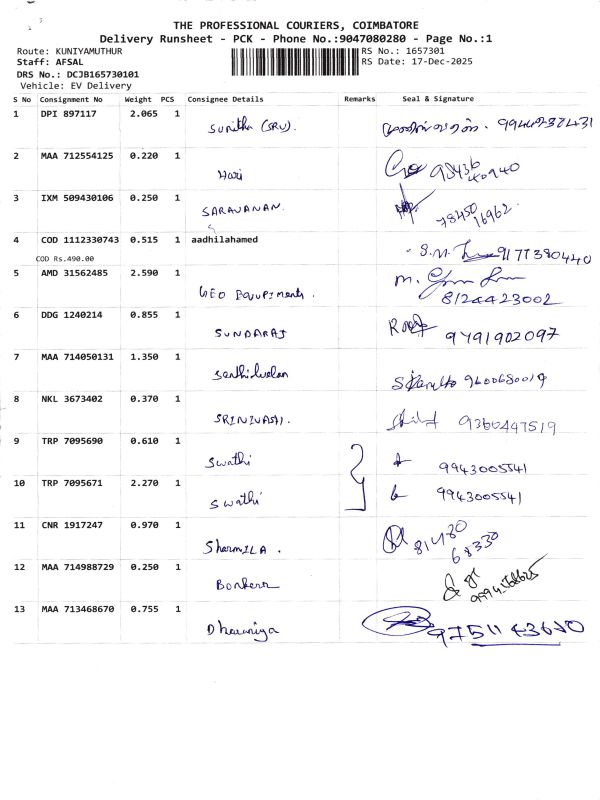 THE PROFESSIONAL COURIERS, COIMBATORE
Delivery Runsheet - PCK - Phone No.:9047080280 - Page No.:1
Route: KUNIYAMUTHUR RS No.: 1657301
Staff: AFSAL RS Date: 17-Dec-2025
DRS No.: DCJB165730101
Vehicle: EV Delivery
S No Consignment No Weight PCS Consignee Details Remarks Seal & Signature
1 DPI 897117 2.065 1
Sunitha (SRU).
2 MAA 712554125 0.220 1
Hari 98436
40940
3 IXM 509430106 0.250 1
SARAVANAN. 78450
16962
4 COD 1112330743 0.515 1 aadhilahamed
COD Rs.490.00 9177380440
5 AMD 31562485 2.590 1
GEO EQUIPments. 8124423002
6 DDG 1240214 0.855 1
SUNDARAJ 9791902097
7 MAA 714050131 1.350 1
Senthilvelan 9600680019
8 NKL 3673402 0.370 1
9360447519
9 TRP 7095690 0.610 1
Swathi 9943005541
10 TRP 7095671 2.270 1
Swathi 9943005541
11 CNR 1917247 0.970 1
SharmILA. 81480
68330
12 MAA 714988729 0.250 1
13 MAA 713468670 0.755 1
Dharaniya 9751143670